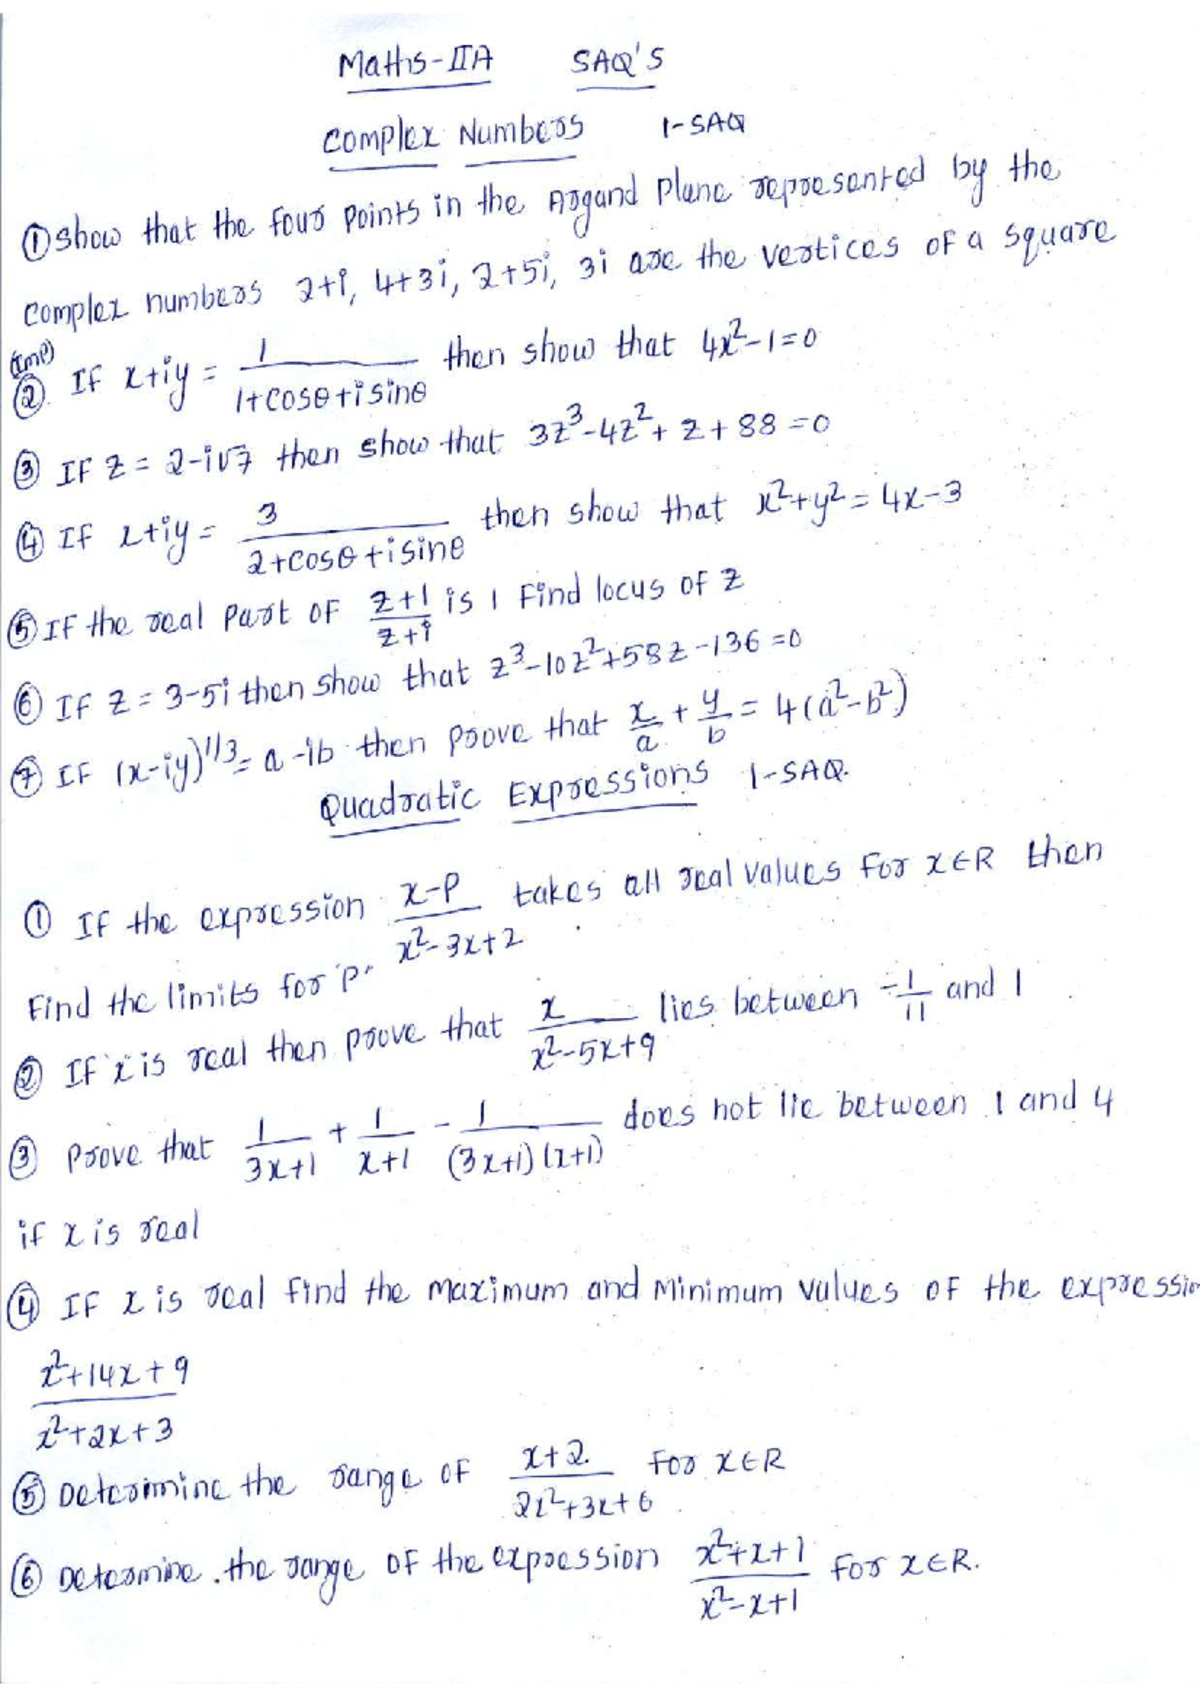 Maths-IIA SAQ'S
Complex Numbers 1-SAQ
① Show that the four points in the Argand plane represented by the
complex numbers 2+i, 4+3i, 2+5i, 3i are the vertices of a square
(imp)
② If x+iy = 1/(1+cosθ+isinθ) then show that 4x²-1=0
③ If z = 2-i√7 then show that 3z³-4z²+z+88=0
④ If x+iy = 3/(2+cosθ+isinθ) then show that x²+y²=4x-3
⑤ If the real part of (z+1)/(z+i) is 1 Find locus of z
⑥ If z = 3-5i then show that z³-10z²+58z-136=0
⑦ If (x-iy)^1/3 = a-ib then prove that x/a + y/b = 4(a²-b²)
Quadratic Expressions 1-SAQ.
① If the expression (x-p)/(x²-3x+2) takes all real values for x∈R then
Find the limits for 'p'
② If x is real then prove that x/(x²-5x+9) lies between -1/11 and 1
③ Prove that 1/(3x+1) + 1/(x+1) - 1/((3x+1)(x+1)) does not lie between 1 and 4
if x is real
④ If x is real find the maximum and minimum values of the expression
(x²+14x+9)/(x²+2x+3)
⑤ Determine the range of (x+2)/(2x²+3x+6) for x∈R
⑥ Determine the range of the expression (x²+x+1)/(x²-x+1) for x∈R.